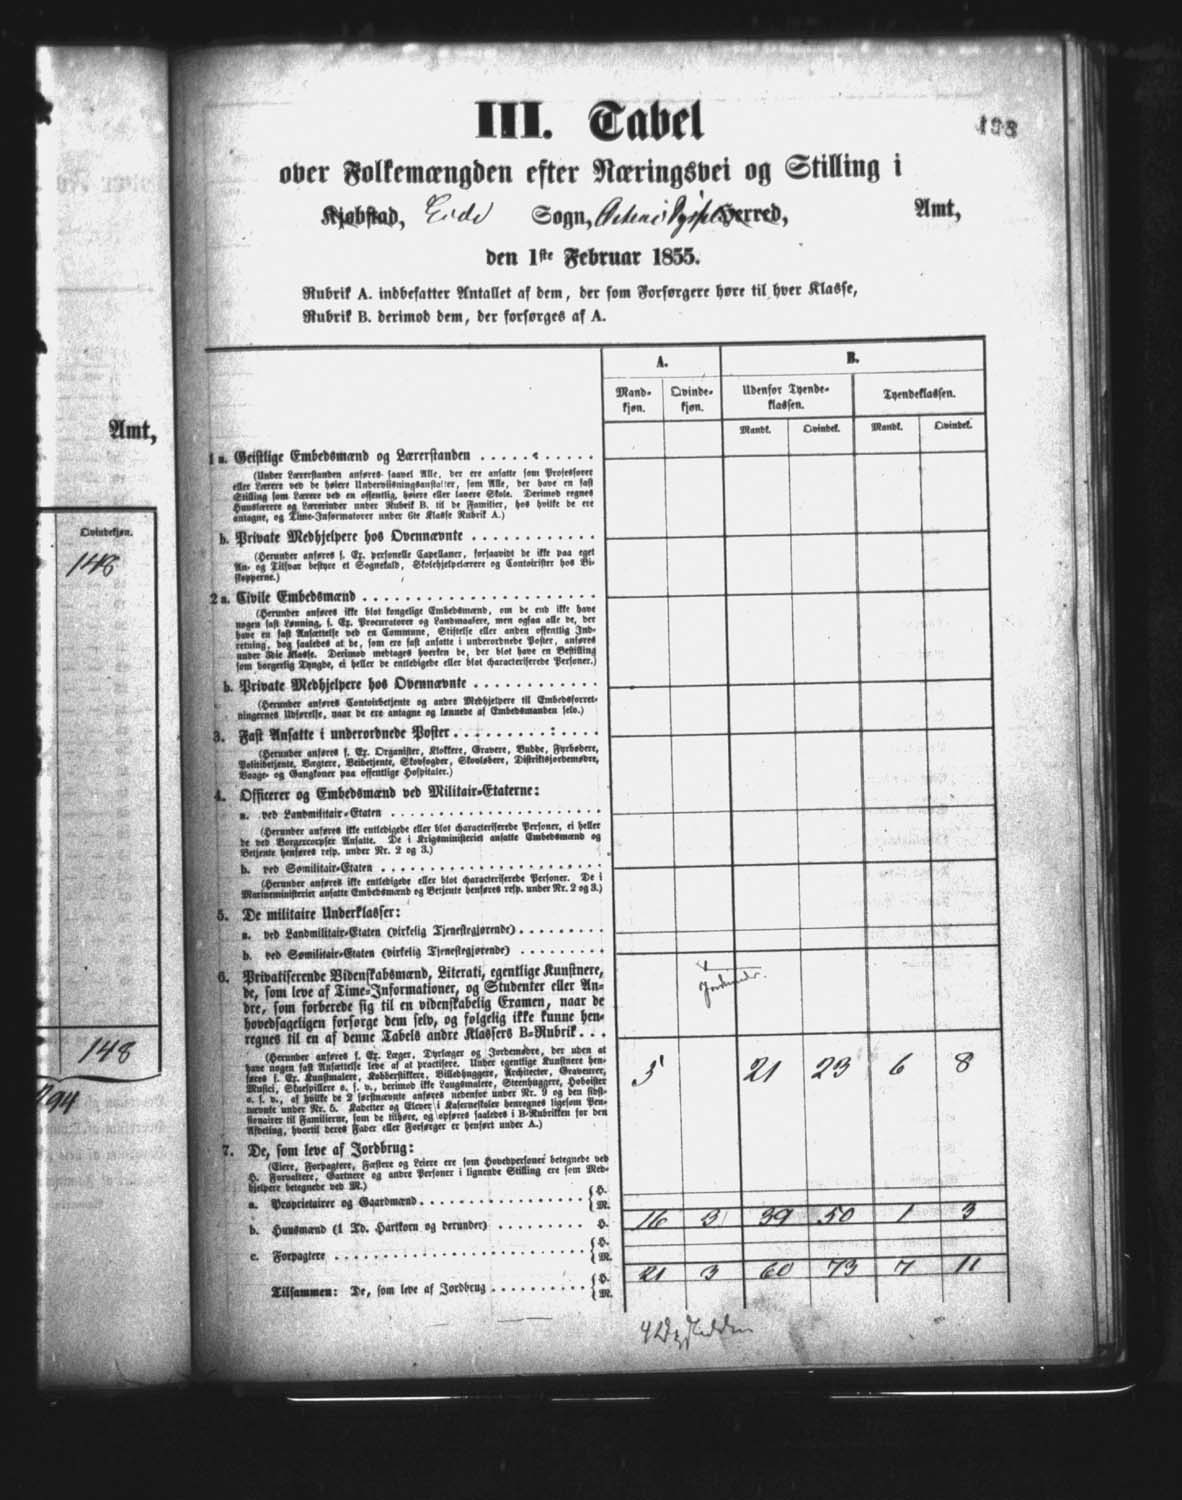 198
III. Tabel
over Folkemængden efter Næringsvei og Stilling i
Kjøbstad, Sogn, Herred, Amt,
den 1ste Februar 1855.
Rubrik A. indbefatter Antallet af dem, der som Forsørgere høre til hver Klasse,
Rubrik B. derimod dem, der forsørges af A.
A.
B.
Mand-
kjøn.
Qvinde-
kjøn.
Udenfor Tyende-
klassen.
Tyendeklassen.
Mandk.
Qvindek.
Mandk.
Qvindek.
1 a. Geistlige Embedsmænd og Lærerstanden
(Under Lærerstanden anføres saavel Alle, der ere ansatte som Professorer
eller Lærere ved de høiere Underviisningsanstalter, som Alle, der have en fast
Stilling som Lærere ved en offentlig, høiere eller lavere Skole. Derimod regnes
Huuslærere og Lærerinder under Rubrik B. til de Familier, hos hvilke de ere
antagne, og Time-Informatorer under 6te Klasse Rubrik A.)
b. Private Medhjelpere hos Ovennævnte
(Herunder anføres f. Ex. personelle Capellaner, forsaavidt de ikke paa eget
An- og Tilsvar bestyre et Sognekald, Skolehjelpelærere og Contoirister hos Bi-
skopperne.)
2 a. Civile Embedsmænd
(Herunder anføres ikke blot kongelige Embedsmænd, om de end ikke have
nogen fast Lønning, f. Ex. Procuratorer og Landmaalere, men ogsaa alle de, der
have en fast Ansættelse ved en Commune, Stiftelse eller anden offentlig Ind-
retning, dog saaledes at de, som ere fast ansatte i underordnede Poster, anføres
under 3die Klasse. Derimod medtages hverken de, der blot have en Bestilling
som borgerlig Tyngde, ei heller de entledigede eller blot characteriserede Personer.)
b. Private Medhjelpere hos Ovennævnte
(Herunder anføres Contoirbetjente og andre Medhjelpere til Embedsforret-
ningernes Udførelse, naar de ere antagne og lønnede af Embedsmanden selv.)
3. Fast Ansatte i underordnede Poster
(Herunder anføres f. Ex. Organister, Klokkere, Gravere, Budde, Fyrbødere,
Politibetjente, Vægtere, Veibetjente, Skovfogder, Skovløbere, Distriktsjordemødre,
Vaage- og Gangkoner paa offentlige Hospitaler.)
4. Officerer og Embedsmænd ved Militair-Etaterne:
a. ved Landmilitair-Etaten
(Herunder anføres ikke entledigede eller blot characteriserede Personer, ei heller
de ved Borgercorpser Ansatte. De i Krigsministeriet ansatte Embedsmænd og
Betjente henføres resp. under Nr. 2 og 3.)
b. ved Sømilitair-Etaten
(Herunder anføres ikke entledigede eller blot characteriserede Personer. De i
Marineministeriet ansatte Embedsmænd og Betjente henføres resp. under Nr. 2 og 3.)
5. De militaire Underklasser:
a. ved Landmilitair-Etaten (virkelig Tjenestegjørende)
b. ved Sømilitair-Etaten (virkelig Tjenestegjørende)
6. Privatiserende Videnskabsmænd, Literati, egentlige Kunstnere,
de, som leve af Time-Informationer, og Studenter eller An-
dre, som forberede sig til en videnskabelig Examen, naar de
hovedsageligen forsørge dem selv, og følgelig ikke kunne hen-
regnes til en af denne Tabels andre Klassers B-Rubrik
(Herunder anføres f. Ex. Læger, Dyrlæger og Jordemødre, der uden at
have nogen fast Ansættelse leve af at practisere. Under egentlige Kunstnere hen-
føres f. Ex. Kunstmalere, Kobberstikkere, Billedhuggere, Architecter, Graveurer,
Musici, Skuespillere o. s. v., derimod ikke Laugsmalere, Steenhuggere, Hoboister
o. s. v., af hvilke de 2 førstnævnte anføres nedenfor under Nr. 9 og den sidst-
nævnte under Nr. 5. Kadetter og Elever i Kaserneskoler henregnes ligesom Pen-
sionairer til Familierne, som de tilhøre, og opføres saaledes i B-Rubrikken for den
Afdeling, hvortil deres Fader eller Forsørger er henført under A.)
7. De, som leve af Jordbrug:
(Eiere, Forpagtere, Fæstere og Leiere ere som Hovedpersoner betegnede ved
H. Forvaltere, Gartnere og andre Personer i lignende Stilling ere som Med-
hjelpere betegnede ved M.)
a. Proprietairer og Gaardmænd { H. M. 5 21 23 6 8
b. Huusmænd (1 Td. Hartkorn og derunder) H. 16 3 39 50 1 3
c. Forpagtere { H. M.
Tilsammen: De, som leve af Jordbrug { H. M. 21 3 60 73 7 11
Amt,
Qvindekjøn.
148
148
294